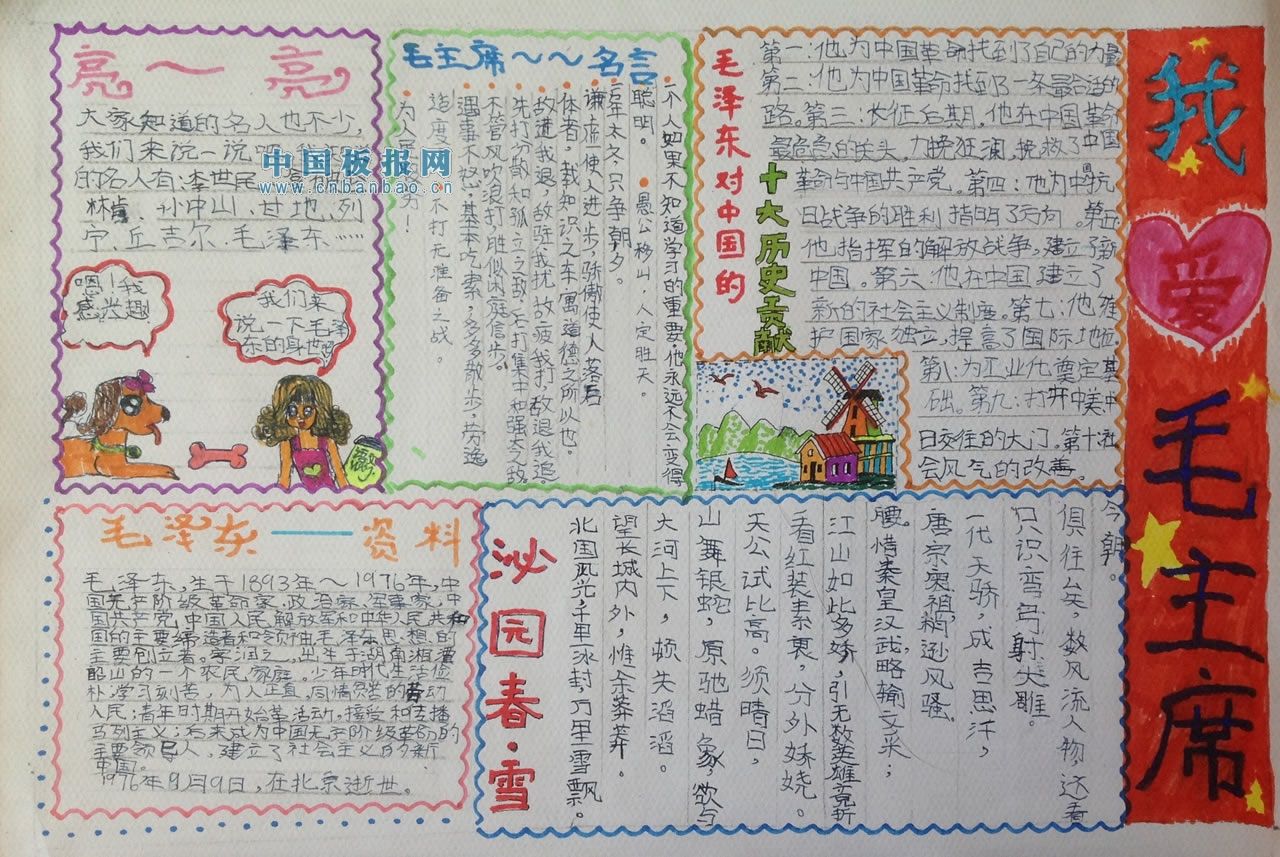 我爱毛主席
亮～亮
大家知道的名人也不少,
我们来说一说吧
的名人有:李世民
林肯、孙中山、甘地、列
宁、丘吉尔、毛泽东……
中国板报网
www.cnbanbao.cn
嗯!我
感兴趣
我们来
说一下毛泽
东的身世吧
毛主席～～名言
一个人如果不知道学习的重要,他永远不会变得
聪明。·愚公移山,人定胜天。
一万年太久,只争朝夕。
谦虚使人进步,骄傲使人落后
体者,载知识之车寓道德之所以也。
敌进我退,敌驻我扰,敌疲我打,敌退我追。
先打分散和孤立之敌,后打集中和强大之敌
不管风吹浪打,胜似闲庭信步。
遇事不怒,基本吃素,多多散步,劳逸
适度·不打无准备之战。
·为人民服务!
毛泽东对中国的
十大历史贡献
第一:他为中国革命找到了自己的力量
第二:他为中国革命找到了一条最合适的
路。第三:长征后期,他在中国革命
最危急的关头,力挽狂澜,挽救了中国
革命与中国共产党。第四:他为中国抗
日战争的胜利指明了方向。第五
他指挥的解放战争,建立了新
中国。第六:他在中国建立了
新的社会主义制度。第七:他维
护国家独立,提高了国际地位
第八:为工业化奠定基
础。第九:打开中美,中
日交往的大门。第十社
会风气的改善。
毛泽东——资料
毛泽东,生于1893年～1976年,中
国无产阶级革命家、政治家、军事家,中
国共产党、中国人民解放军和中华人民共和
国的主要缔造者和领袖,毛泽东思想的
主要创立者。字润之。出生于湖南湘潭
韶山的一个农民家庭。少年时代生活俭
朴,学习刻苦,为人正直,同情贫苦的劳动
人民;青年时期开始革活动,接受和传播
马列主义;后来成为中国无产阶级革命的
主要领导人,建立了社会主义的新
中国。
1976年9月9日,在北京逝世。
沁园春·雪
北国风光,千里冰封,万里雪飘。
望长城内外,惟余莽莽。
大河上下,顿失滔滔。
山舞银蛇,原驰蜡象,欲与
天公试比高。须晴日,
看红装素裹,分外妖娆。
江山如此多娇,引无数英雄竞折
腰,惜秦皇汉武,略输文采;
唐宗宋祖,稍逊风骚。
一代天骄,成吉思汗,
只识弯弓射大雕。
俱往矣,数风流人物,还看
今朝。